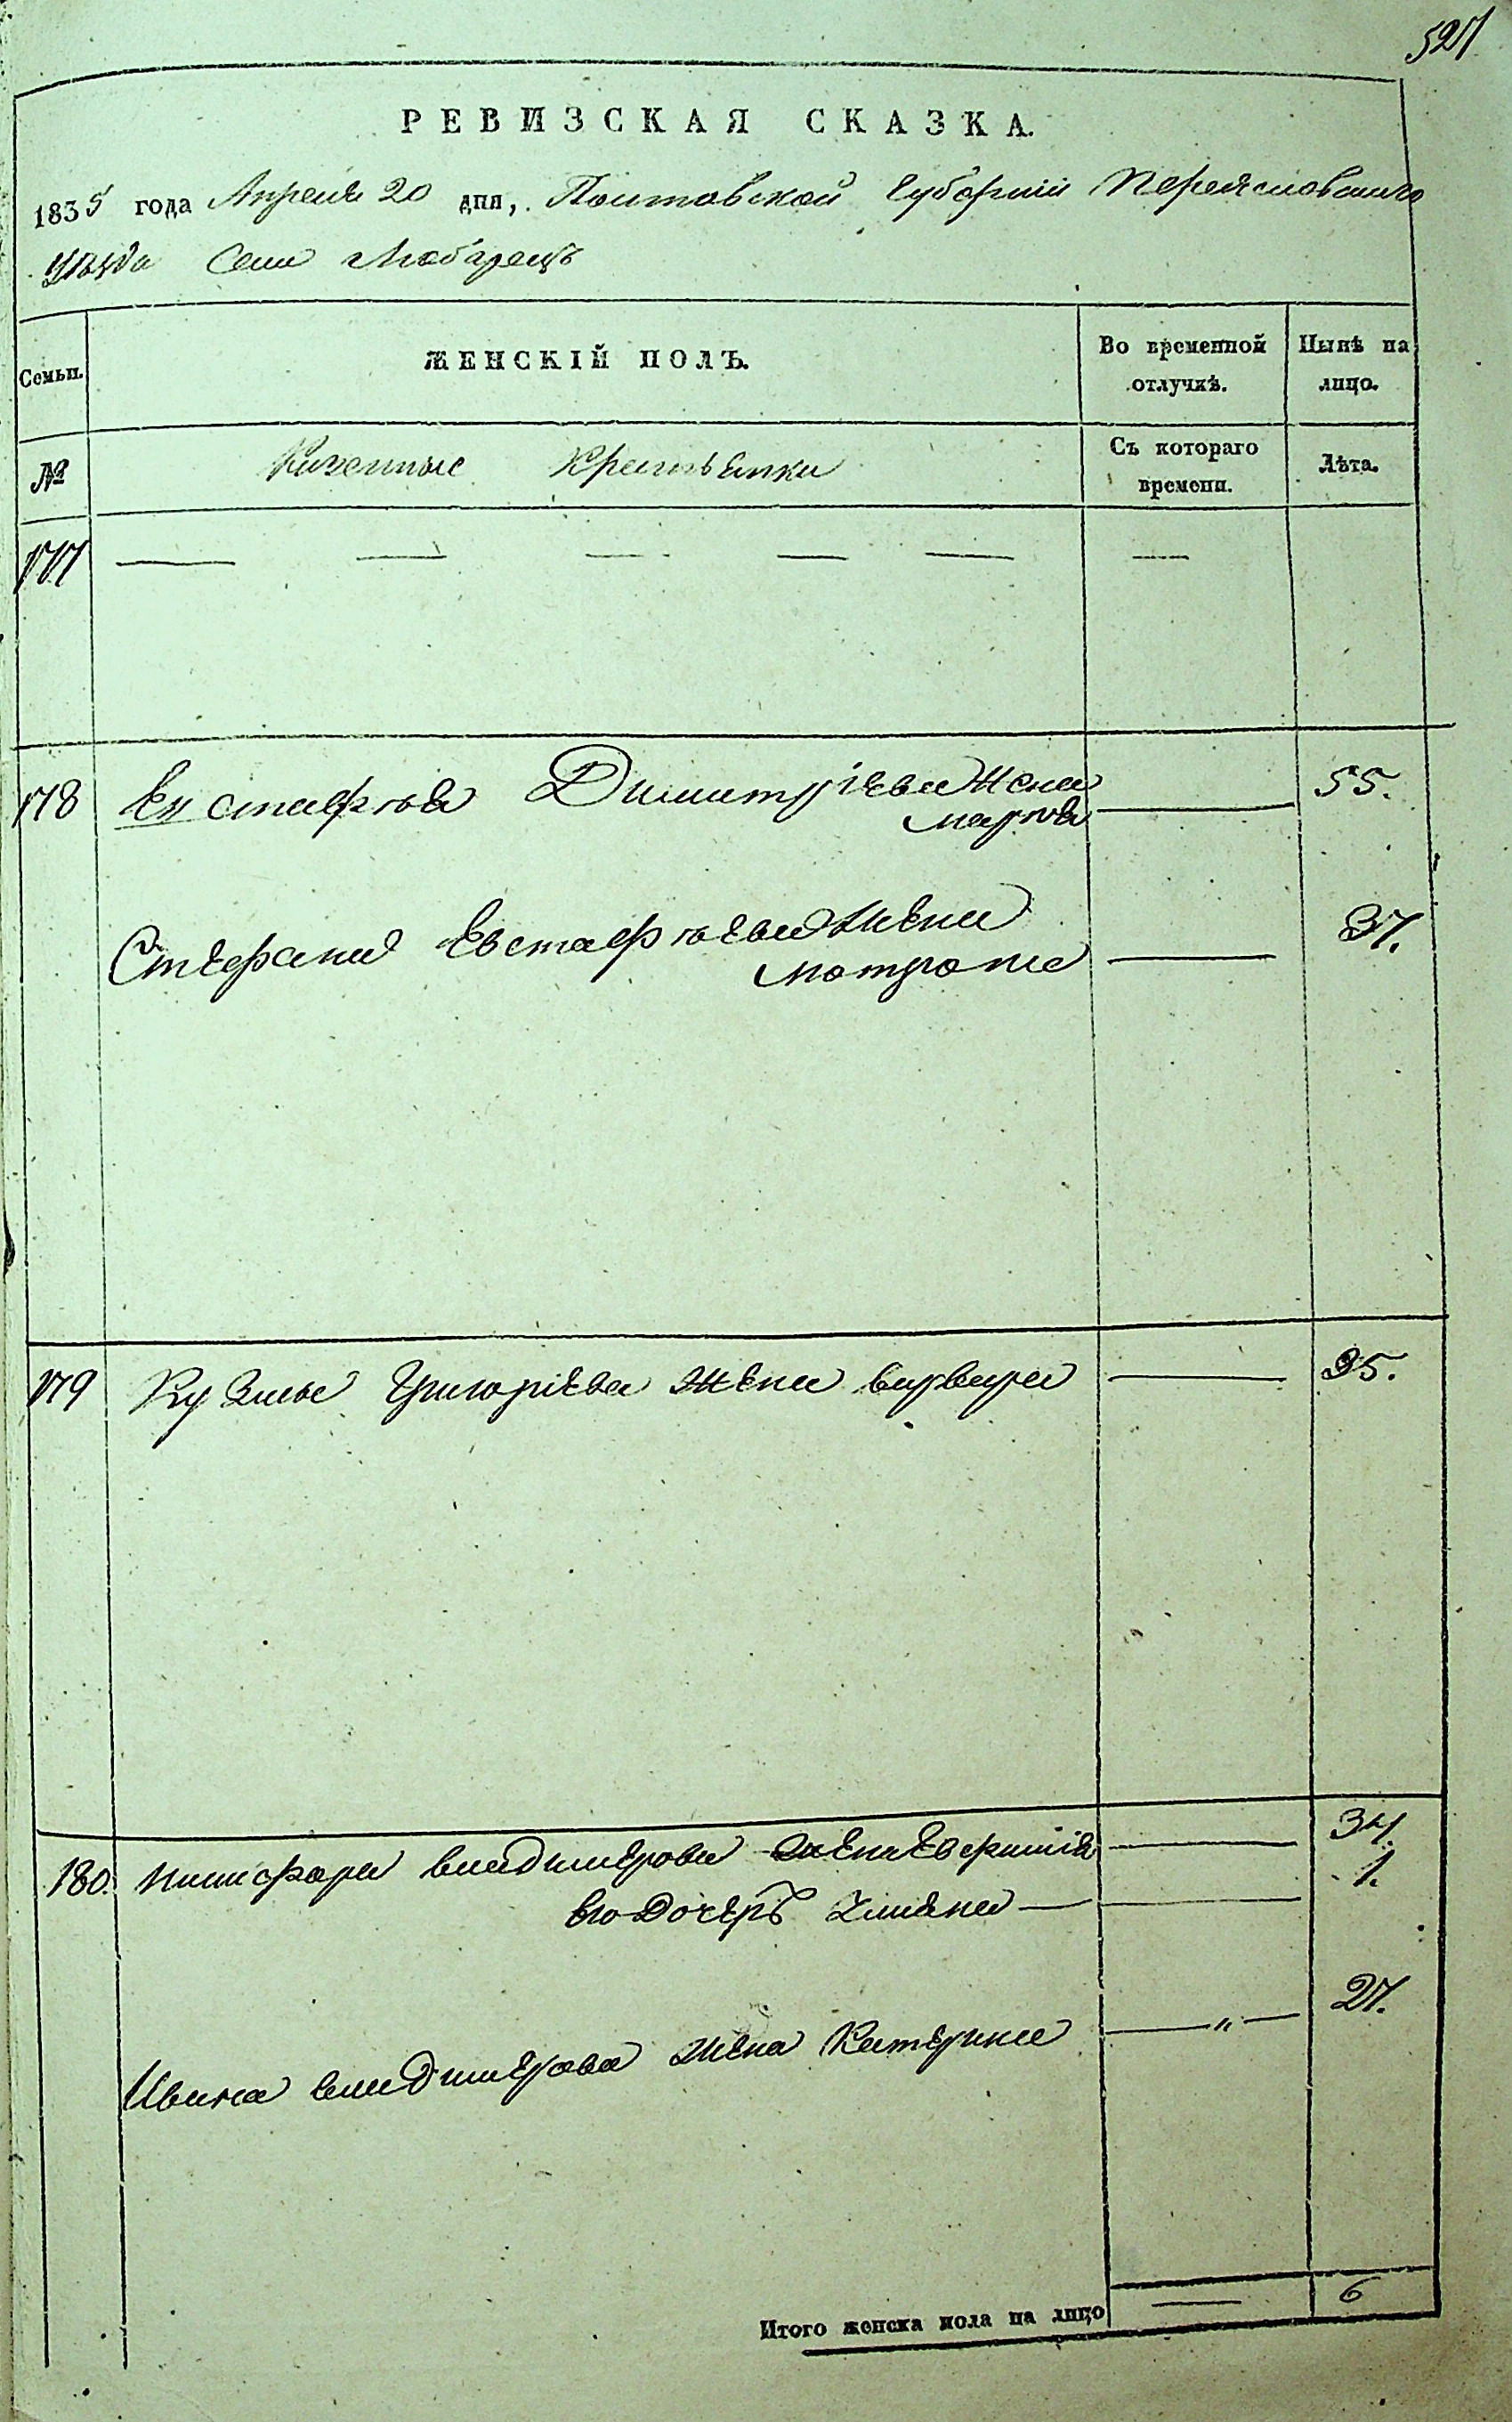 527
РЕВИЗСКАЯ СКАЗКА.
1835 года Апреля 20 дня, Полтавской Губернии Переяславскаго
уезда Села Любарецъ
Семьи. ЖЕНСКІЙ ПОЛЪ. Во временной отлучкѣ. Нынѣ на лицо.
№ Казенные Крестьянки Съ котораго времени. Лѣта.
177 — — — — — —
178 Евстафія Димитріева Жена — 55.
Марѳа
Стефана Евстафіева Жена — 37.
Матрона
179 Кузмы Григоріева жена варвара — 35.
180. никифора владимерова жена Евфимія — 34.
его дочерь — 1.
Ивана владимерова жена Катерина — „ — 27.
Итого женска пола на лицо — 6